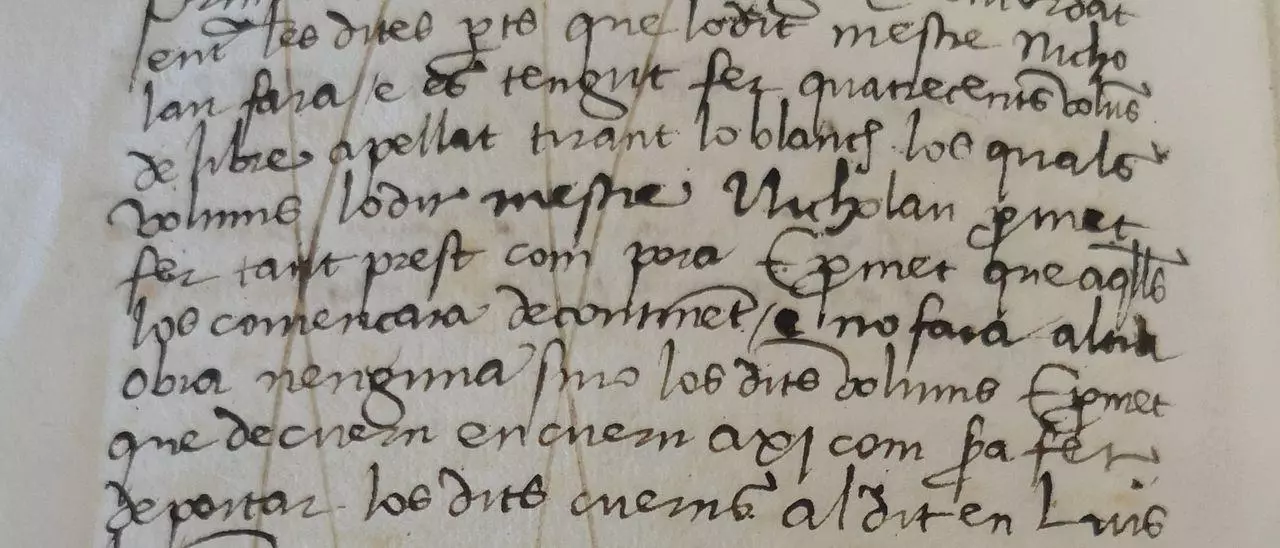 ent les dites pts que lo dit mestre Nicho
lau fara / e es tengut fer quatrecents volums
de libre apellat tirant lo blanch los quals
volums lo dit mestre Nicholau pmet
fer tant prest com pora E pmet que aqlls
los comencara decontinet / e no fara altra
obra nenguna sino los dits volums E pmet
que de cuern en cuern axi com sa fer
de portar los dits cuerns al dit en Luis